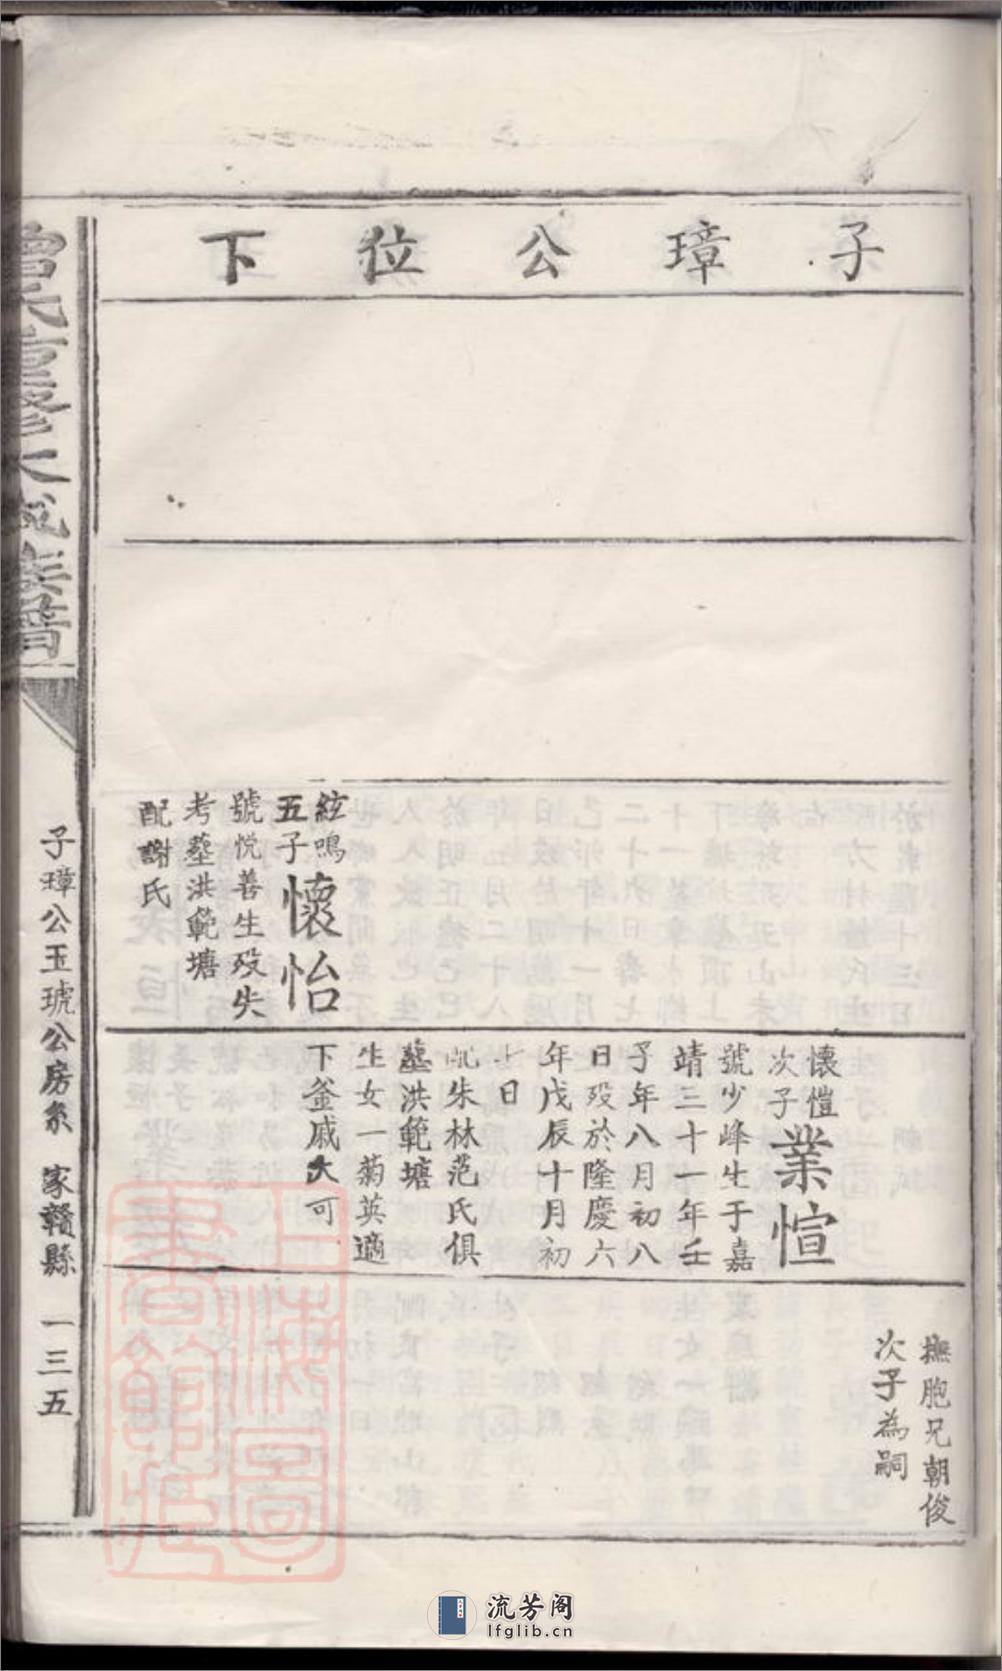 子璋公位下
絃鳴
五子懷怡
號悅善生歿失
考塟洪範塘
配謝氏
懷愷
次子業愃
號少峰生于嘉
靖三十一年壬
子年八月初八
日歿於隆慶六
年戊辰十月初
七日
配朱林范氏俱
墓洪範塘
生女一菊英適
下釜戚大可
撫胞兄朝俊
次子為嗣
曾氏重修大成族譜
子璋公玉琥公房系 家贛縣 一三五
上海圖書館藏
流芳阁
lfglib.cn